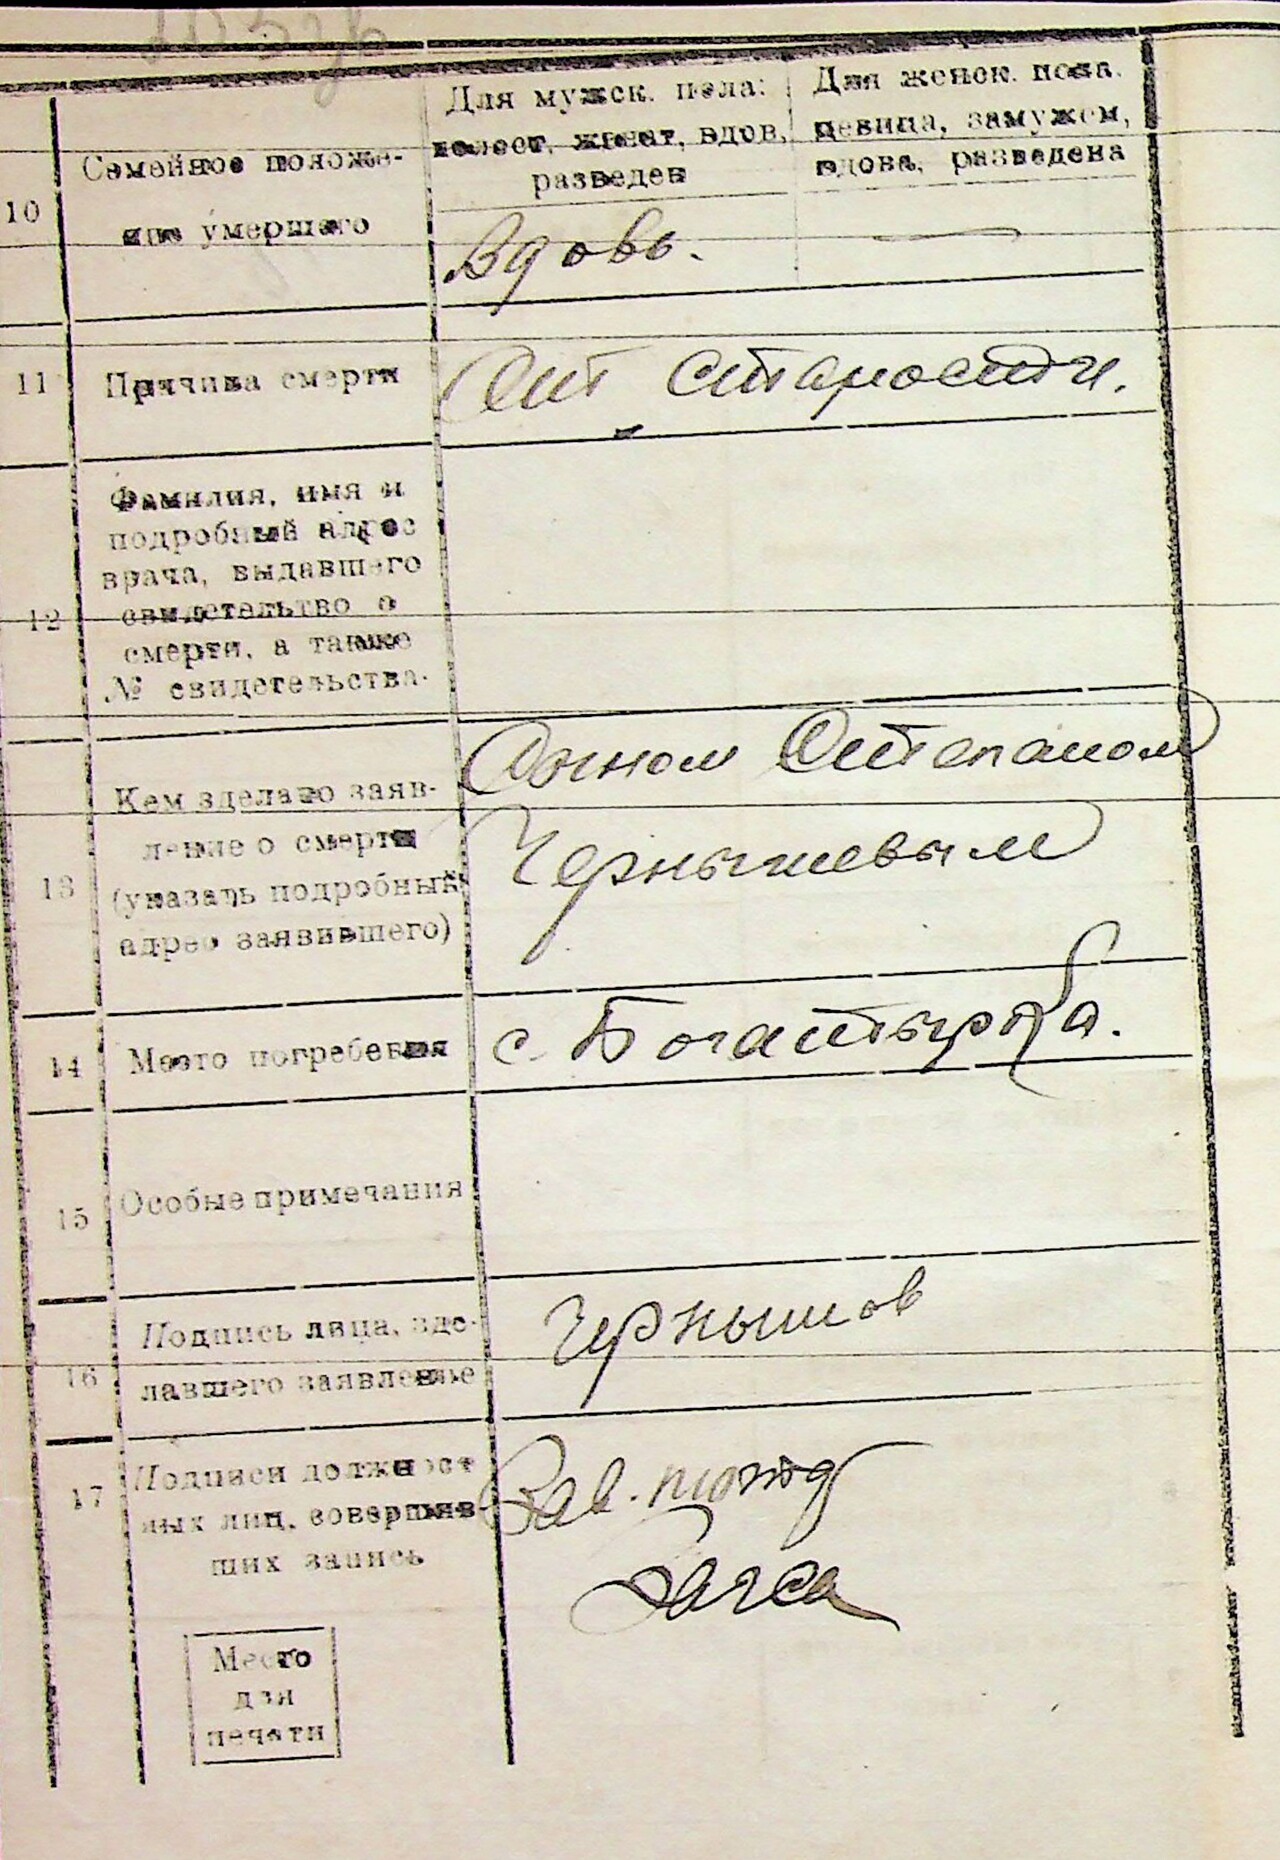 Для мужск. пола:
холост, женат, вдов,
разведен
Для женск. пола.
девица, замужем,
вдова, разведена
10
Семейное положе-
ние умершего
Вдовь.
11
Причина смерти
От старости.
12
Фамилия, имя и
подробный адрес
врача, выдавшего
свидетельство о
смерти, а также
№ свидетельства.
13
Кем зделано заяв-
ление о смерти
(указать подробный
адрес заявившего)
Сыном Степаном
Чернышевым
14
Место погребения
с. Богатырка.
15
Особые примечания
16
Подпись лица, зде-
лавшего заявление
Чернышов
17
Подписи должност
ных лиц, совершив-
ших запись
Зав.
Загса
Место
для
печати